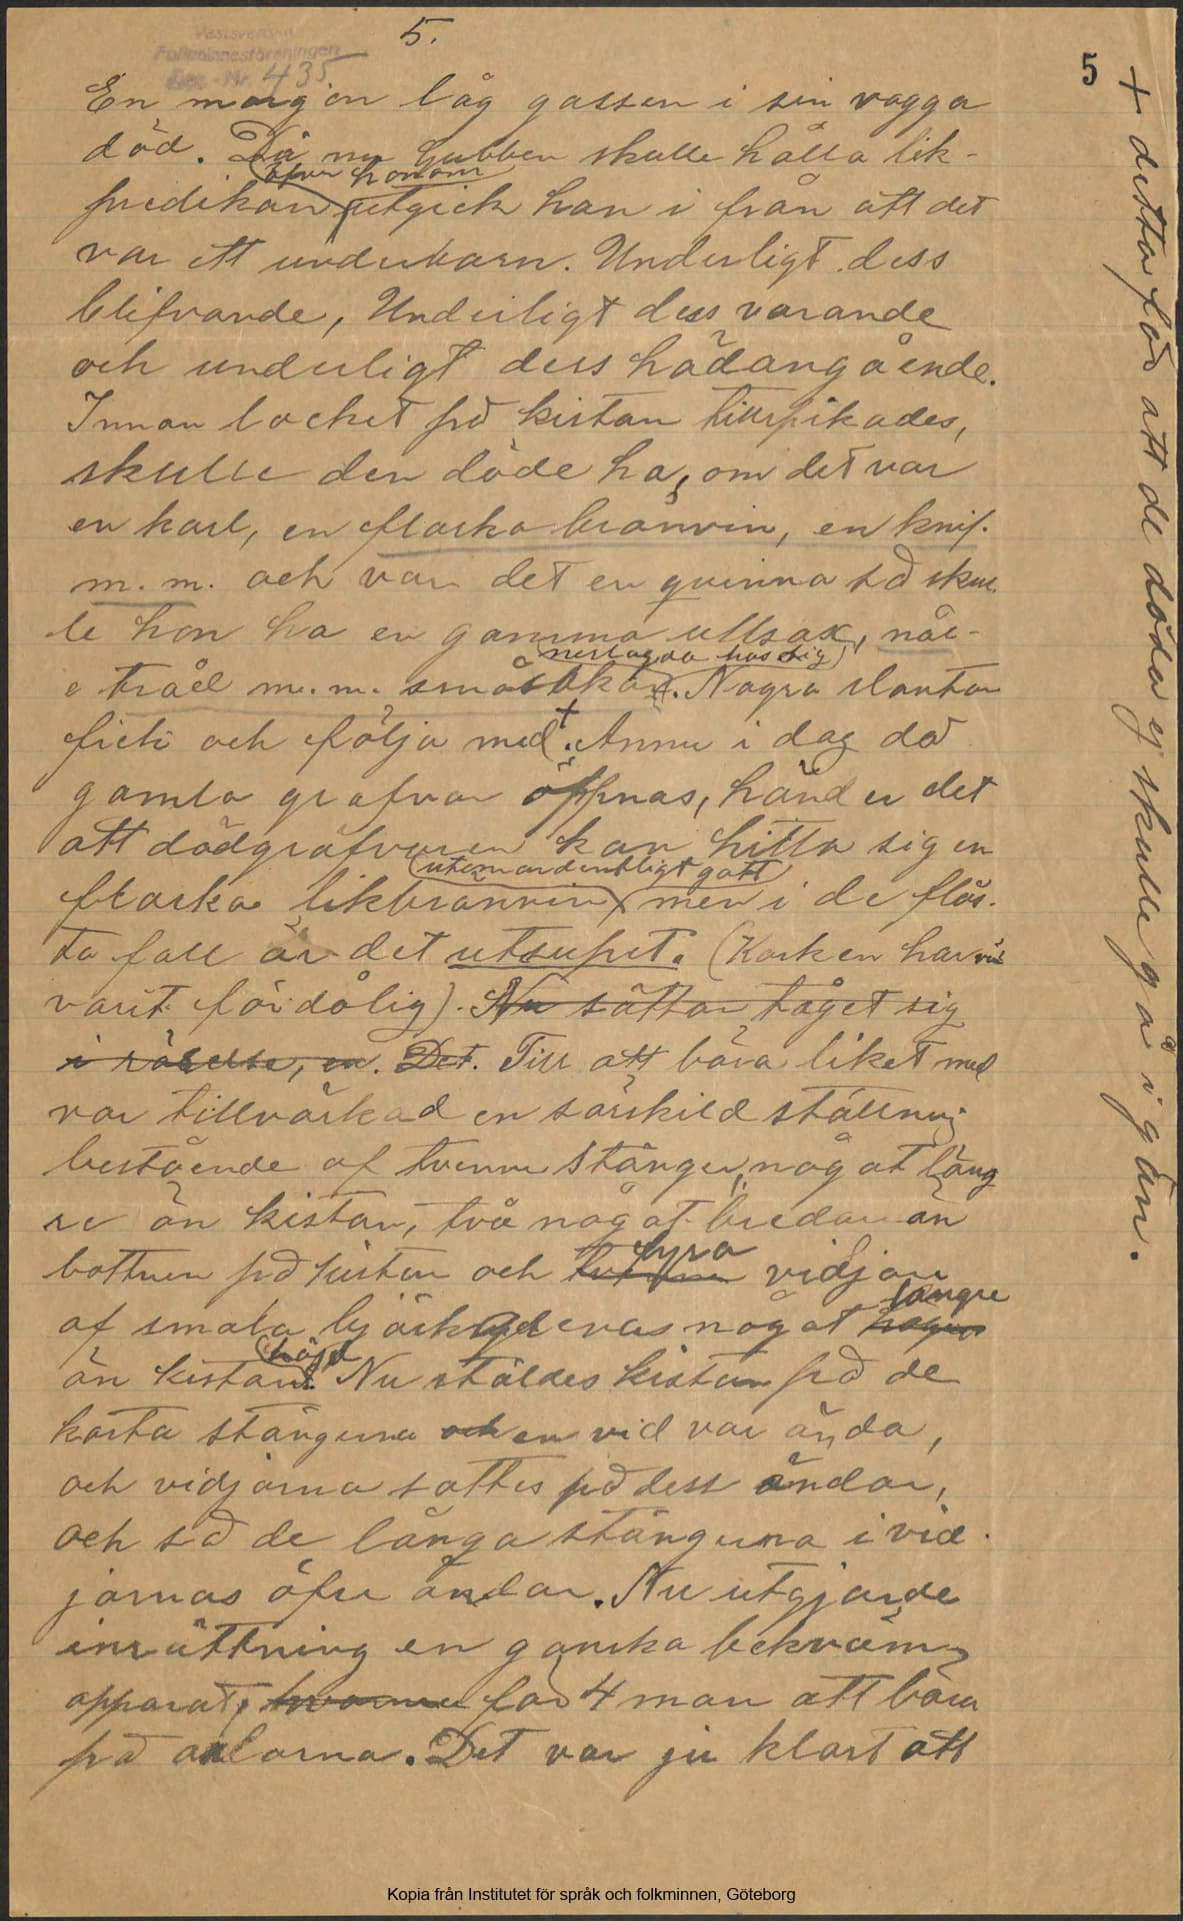 5.
5
Västsvenska
Folkminnesföreningen
Acc.-Nr. 435
En morgon låg gossen i sin vagga
död. Då nu gubben skulle hålla lik-
öfver honom
predikan utgick han i från att det
var ett underbarn. Underligt dess
blifvande, Underligt dess varande
och underligt dess hädangående.
Innan locket på kistan tillspikades,
skulle den döde ha, om det var
en karl, en flaska bränvin, en knif.
m. m. och var det en quinna så skul.
le hon ha en gammal ullsax, nål-
nerlagda hos sig
o tråd m. m. småsaker. Några slantar
fick och följa med +. Ännu i dag då
gamla grafvar öppnas, händer det
att dödgräfvaren kan hitta sig en
utomordentligt gott
flaska likbrännvin men i de fläs.
ta fall är det utsupet. (Korken har väl
varit för dålig). Nu sätter tåget sig
i rörelse, en. Det. Till att bära liket med
var tillvärkad en särskild ställning
bestående af tvenne stänger, något läng
re än kistan, två något bredare än
fyra
bottnen på kistan och tvenne vidjor
längre
af smala björkar deras något högre
höjd
än kistans. Nu stäldes kistan på de
korta stängerna och en vid var ända,
och vidjorna sattes på dess ändar,
och så de långa stängerna i vid.
jornas öfre ändar. Nu utgjorde
inrättning en ganska bekväm
apparat, för 4 man att bära
på axlarna. Det var ju klart att
+ detta för att de döda ej skulle gå igän.
Kopia från Institutet för språk och folkminnen, Göteborg